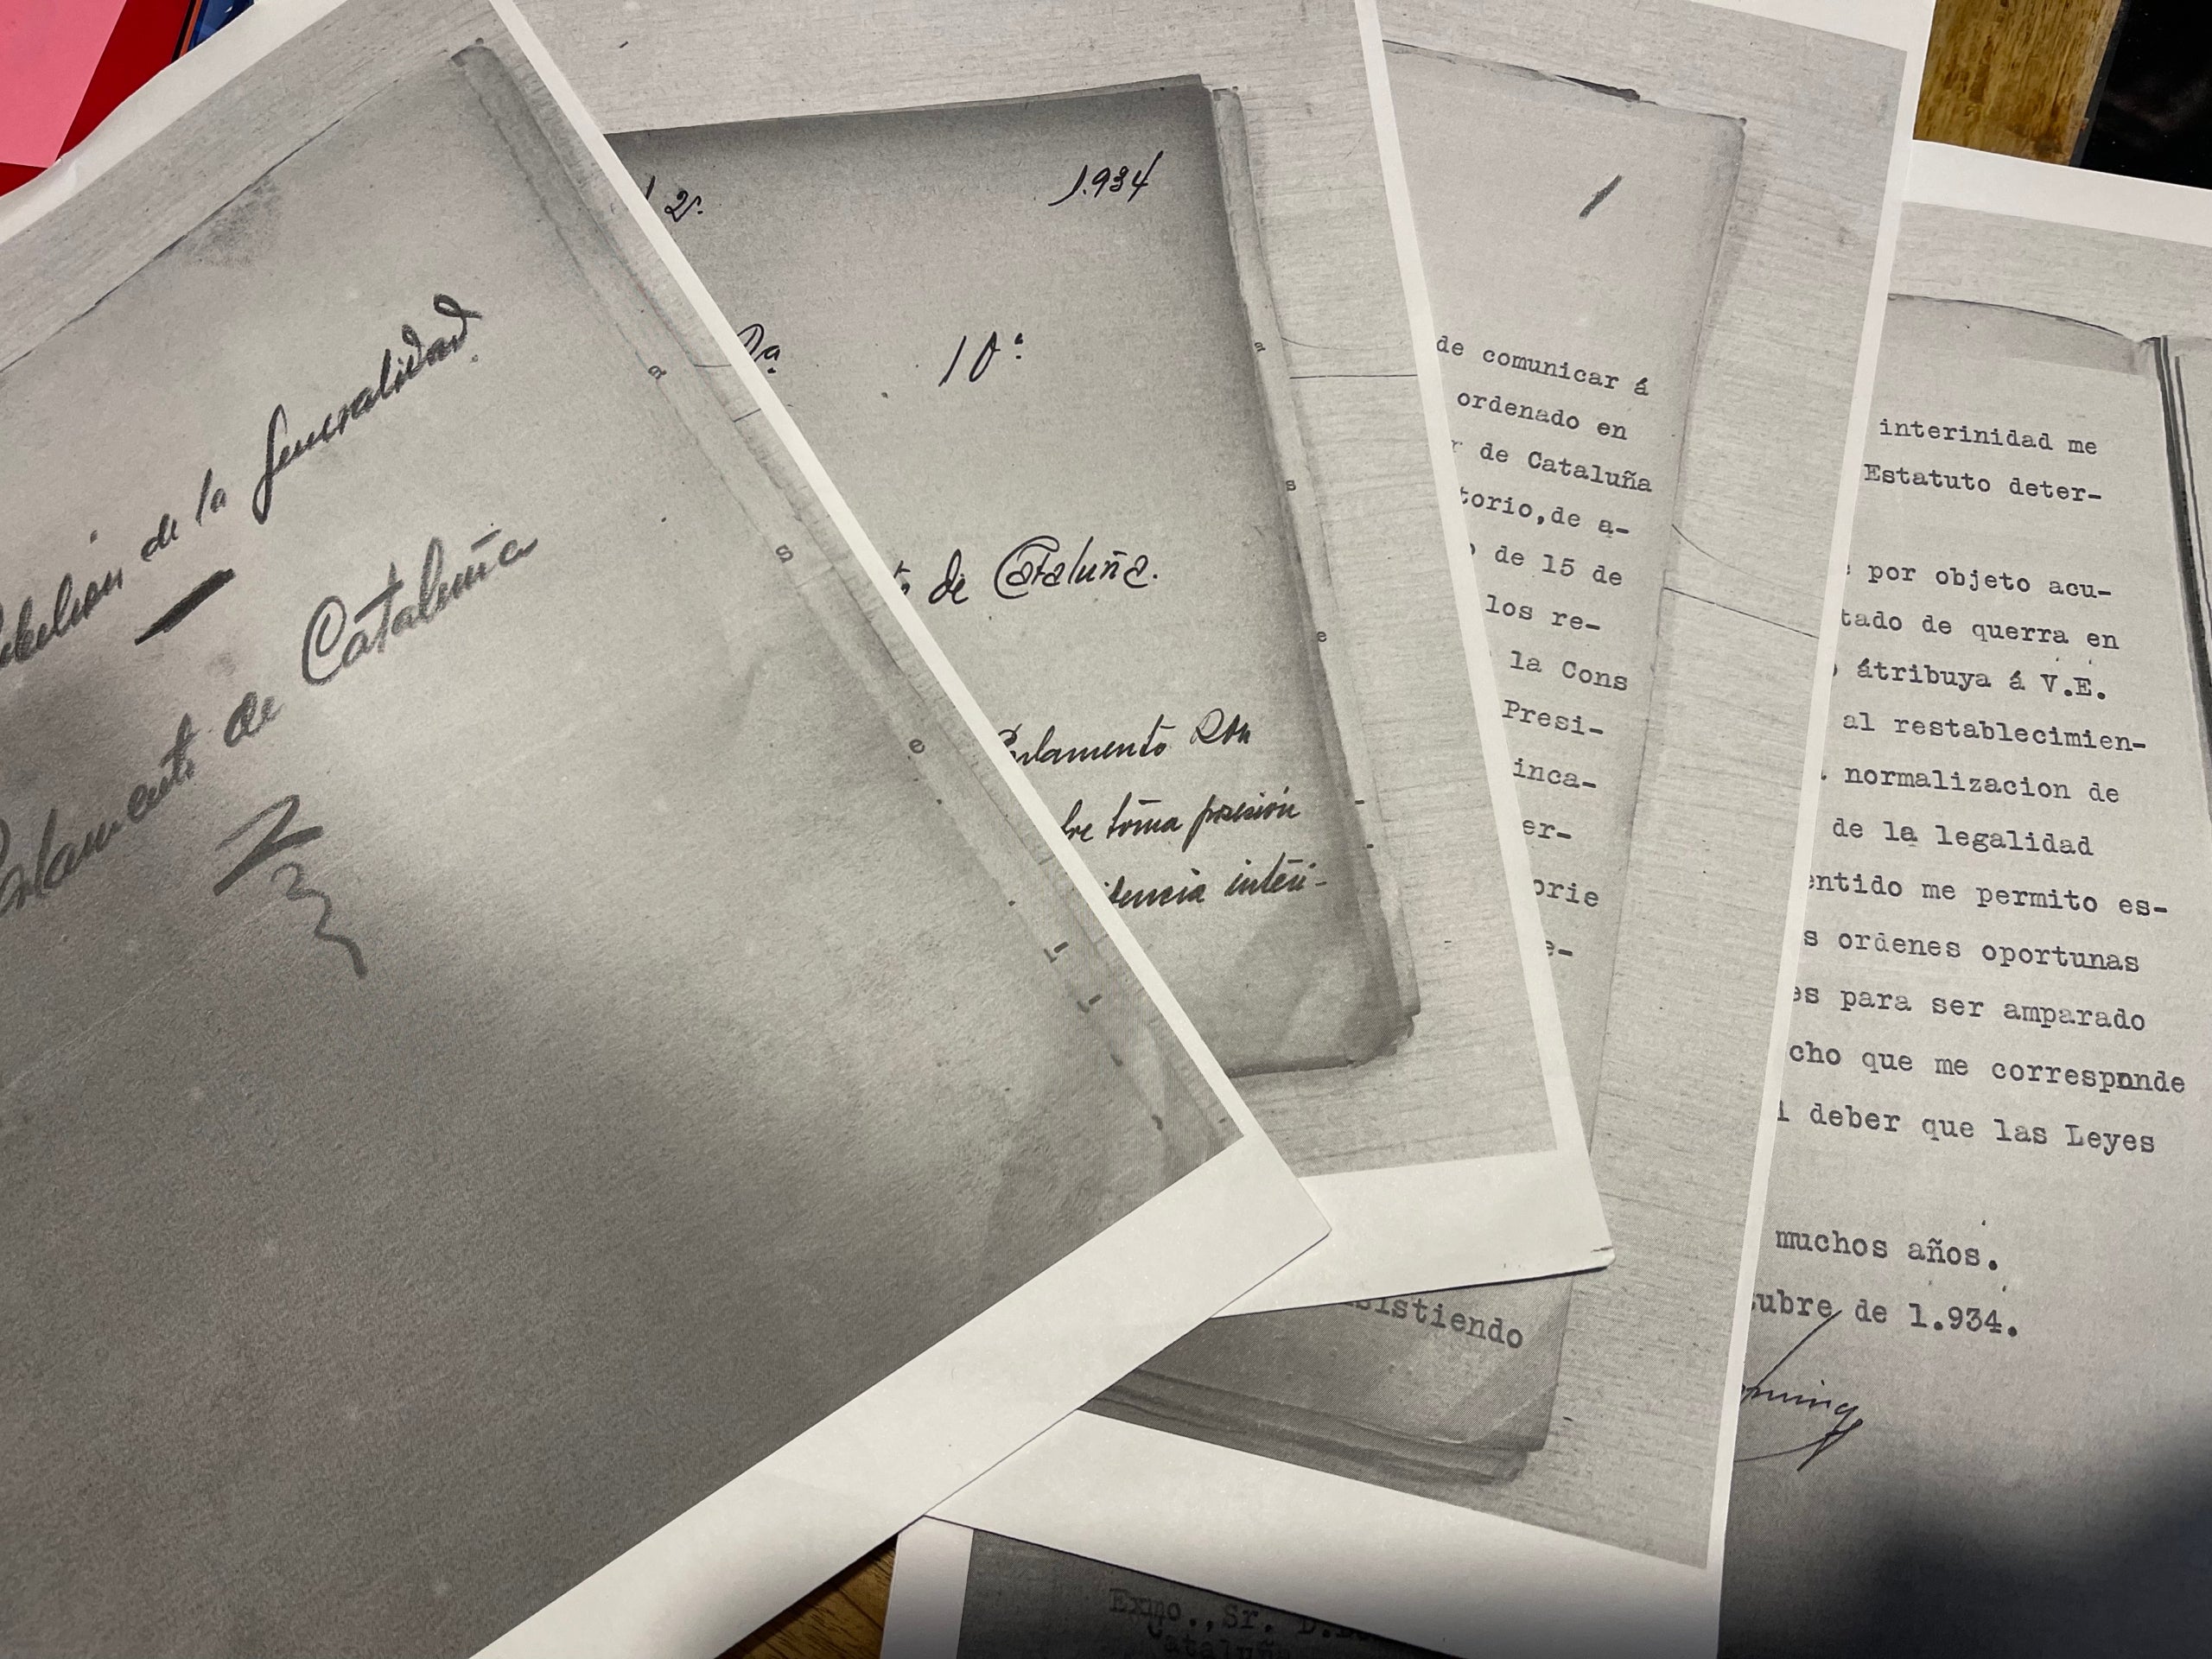 de la Generalidad
Parlamento de Cataluña
2
1.934
10ª
de Cataluña.
Parlamento
toma posesión
interi-
de comunicar á
ordenado en
de Cataluña
torio,de a-
de 15 de
los re-
la Cons
Presi-
inca-
er-
orie
e-
sistiendo
interinidad me
Estatuto deter-
por objeto acu-
tado de querra en
átribuya á V.E.
al restablecimien-
normalizacion de
de la legalidad
entido me permito es-
s ordenes oportunas
es para ser amparado
cho que me corresponde
deber que las Leyes
muchos años.
tubre de 1.934.
Exmo.,Sr. D.
Cataluña